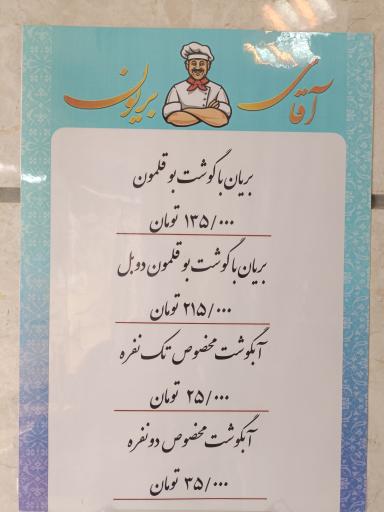 آقای بریون
بریان با گوشت بوقلمون
۱۳۵/۰۰۰ تومان
بریان با گوشت بوقلمون دوبل
۲۱۵/۰۰۰ تومان
آبگوشت مخصوص تک نفره
۲۵/۰۰۰ تومان
آبگوشت مخصوص دو نفره
۳۵/۰۰۰ تومان